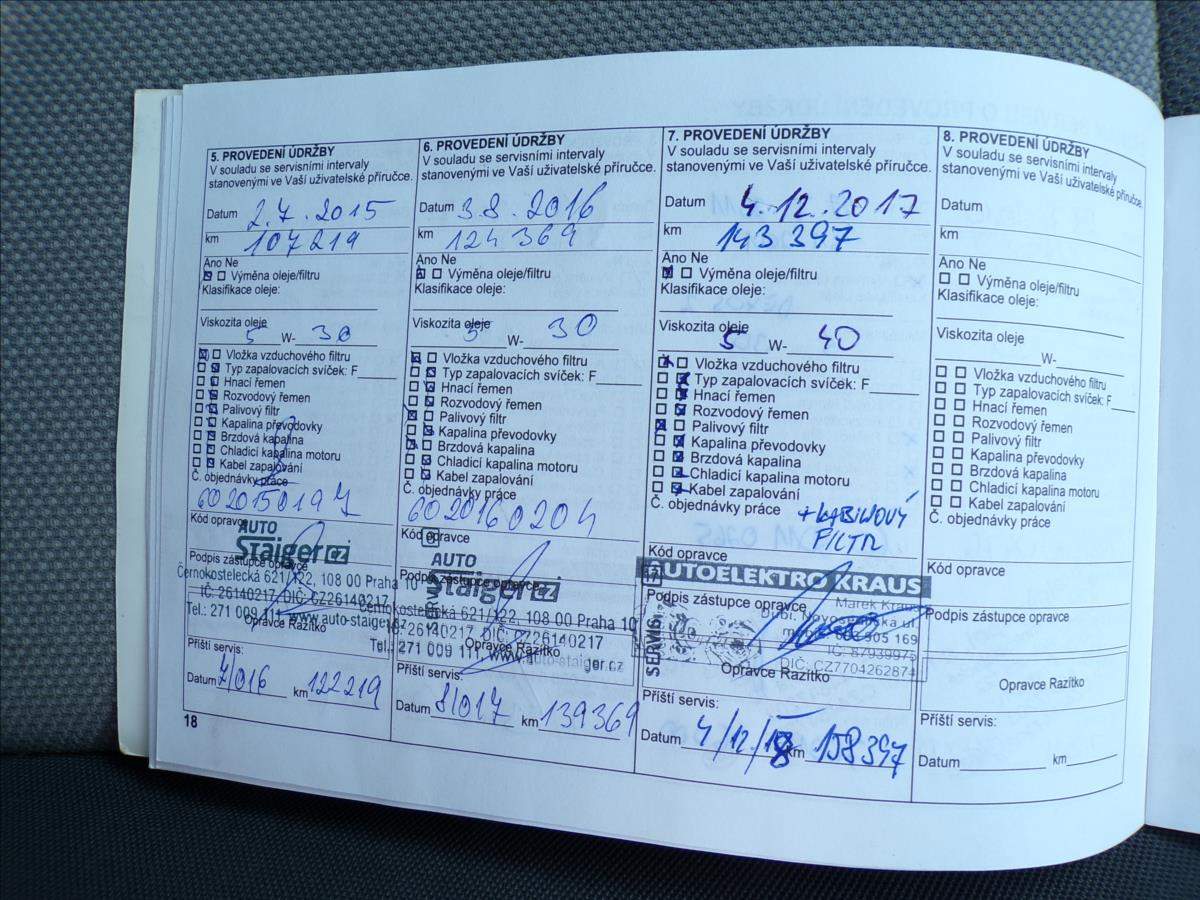 5. PROVEDENÍ ÚDRŽBY
V souladu se servisními intervaly
stanovenými ve Vaší uživatelské příručce.
Datum 2.7.2015
km 107219
Ano Ne
Výměna oleje/filtru
Klasifikace oleje:
Viskozita oleje
5 W- 30
Vložka vzduchového filtru
Typ zapalovacích svíček: F
Hnací řemen
Rozvodový řemen
Palivový filtr
Kapalina převodovky
Brzdová kapalina
Chladicí kapalina motoru
Kabel zapalování
Č. objednávky práce
Kód opravce
AUTO
Staiger.cz
Podpis zástupce opravce
Černokostelecká 621/122, 108 00 Praha 10
IČ: 26140217, DIČ: CZ26140217
Tel.: 271 009 111, www.auto-staiger.cz
Opravce Razítko
Příští servis:
Datum 7/016 km 122219
18
6. PROVEDENÍ ÚDRŽBY
V souladu se servisními intervaly
stanovenými ve Vaší uživatelské příručce.
Datum 3.8.2016
km 124 369
Ano Ne
Výměna oleje/filtru
Klasifikace oleje:
Viskozita oleje
5 W- 30
Vložka vzduchového filtru
Typ zapalovacích svíček: F
Hnací řemen
Rozvodový řemen
Palivový filtr
Kapalina převodovky
Brzdová kapalina
Chladicí kapalina motoru
Kabel zapalování
Č. objednávky práce
6020160204
Kód opravce
AUTO
Staiger.cz
Podpis zástupce opravce
Černokostelecká 621/122, 108 00 Praha 10
IČ: 26140217, DIČ: CZ26140217
Tel.: 271 009 111, www.auto-staiger.cz
Opravce Razítko
Příští servis:
Datum 8/017 km 139369
7. PROVEDENÍ ÚDRŽBY
V souladu se servisními intervaly
stanovenými ve Vaší uživatelské příručce.
Datum 4.12.2017
km 143 397
Ano Ne
Výměna oleje/filtru
Klasifikace oleje:
Viskozita oleje
5 W- 40
Vložka vzduchového filtru
Typ zapalovacích svíček: F
Hnací řemen
Rozvodový řemen
Palivový filtr
Kapalina převodovky
Brzdová kapalina
Chladicí kapalina motoru
Kabel zapalování
Č. objednávky práce
+ KABINOVÝ
FILTR
Kód opravce
AUTOELEKTRO KRAUS
Podpis zástupce opravce
Marek Kraus
SERVIS
IČ: 87939975
DIČ: CZ7704262874
Opravce Razítko
Příští servis:
Datum 4/12/18 km 158397
8. PROVEDENÍ ÚDRŽBY
V souladu se servisními intervaly
stanovenými ve Vaší uživatelské příručce.
Datum
km
Ano Ne
Výměna oleje/filtru
Klasifikace oleje:
Viskozita oleje
W-
Vložka vzduchového filtru
Typ zapalovacích svíček: F
Hnací řemen
Rozvodový řemen
Palivový filtr
Kapalina převodovky
Brzdová kapalina
Chladicí kapalina motoru
Kabel zapalování
Č. objednávky práce
Kód opravce
Podpis zástupce opravce
Opravce Razítko
Příští servis:
Datum km